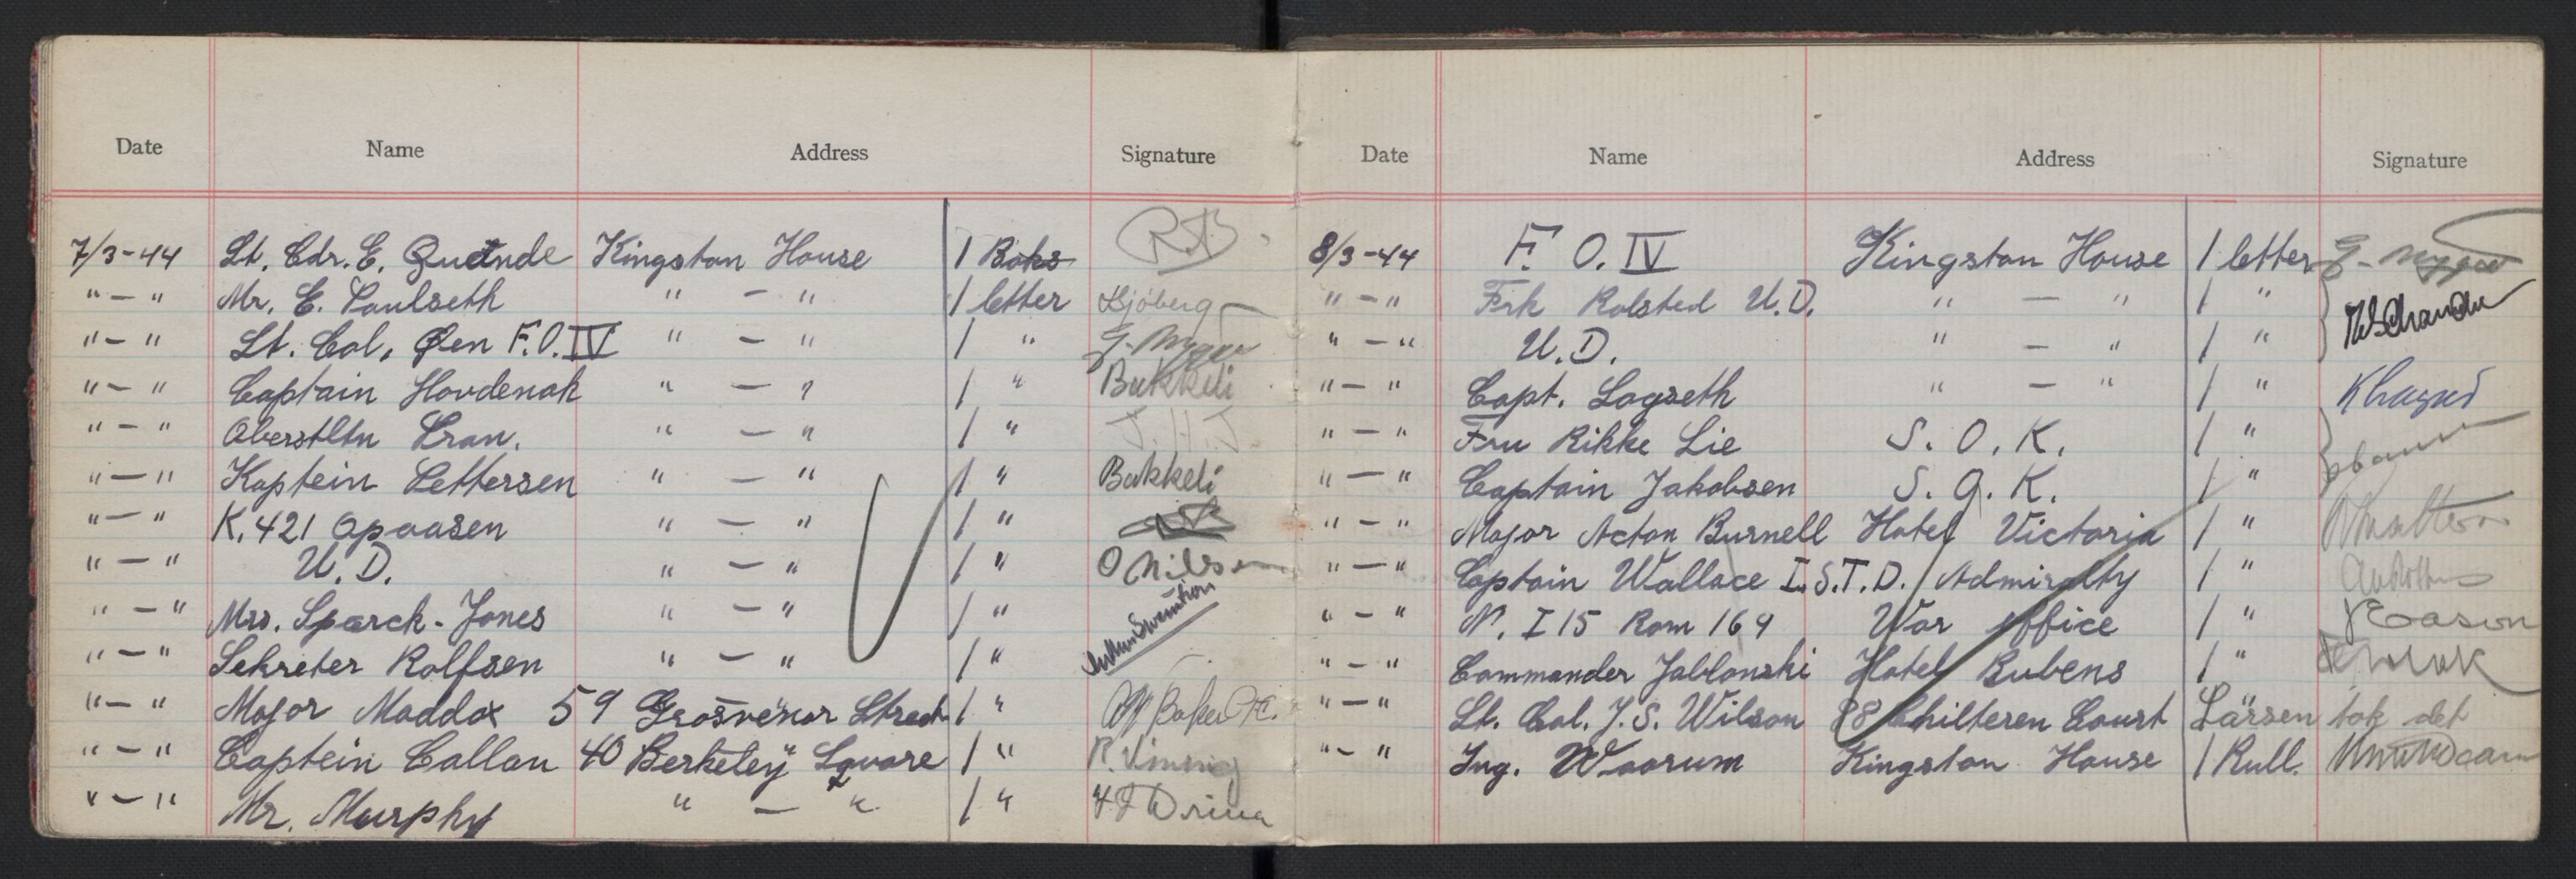 Date Name Address Signature
7/3-44 Lt. Cdr. E. Quande Kingston House 1 Boks R.B.
"-" Mr. E. Paulseth " - " 1 letter Sjöberg
"-" Lt. Col. Øen F.O. IV " - " 1 " G. Nygen
"-" Captain Hovdenak " - " 1 " Bakkeli
"-" Oberstltn Pran. " - " 1 " J.H.J.
"-" Kaptein Pettersen " - " 1 " Bakkeli
"-" K. 421 Opaasen " - " 1 "
"-" U.D. " - " 1 " O Nilsen
"-" Mrs. Sparck-Jones " - " 1 "
"-" Sekretær Rolfsen " - " 1 "
"-" Major Maddox 59 Grosvenor Street 1 "
"-" Captein Callan 40 Berkeley Square 1 "
"-" Mr. Murphy " - " 1 "
Date Name Address Signature
8/3-44 F.O. IV Kingston House 1 letter G. Nygen
"-" Frk Rolsted U.D. " - " 1 "
"-" U.D. " - " 1 "
"-" " Capt. Lagseth " - " 1 "
"-" Fru Rikke Lie S.O.K. 1 "
"-" Captain Jakobsen S.O.K. 1 "
"-" Major Acton Burnell Hotel Victoria 1 "
"-" Captain Wallace I.S.T.D. Admiralty 1 "
"-" N. I 15 Rom 169 War Office 1 " Eason
"-" Commander Jablonski Hotel Rubens 1 "
"-" Lt. Col. J.S. Wilson 88 Chilteren Court Larsen tok det
"-" Ing. Waarum Kingston House 1 Rull.